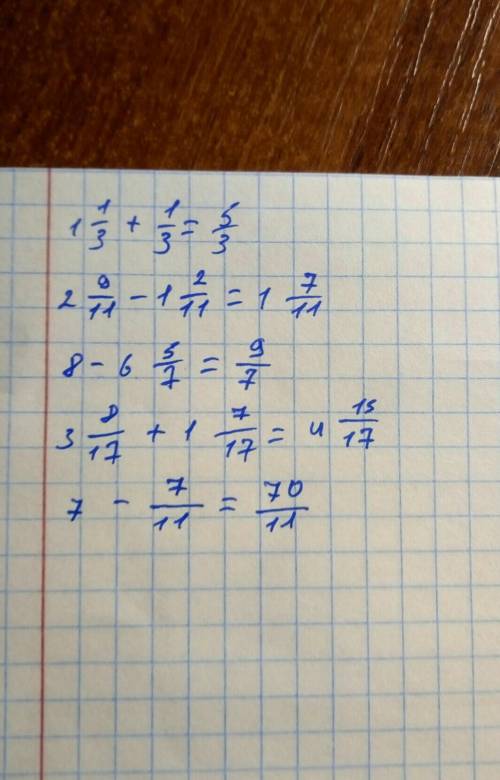 1 1/3 + 1/3 = 5/3
2 9/11 - 1 2/11 = 1 7/11
8 - 6 5/7 = 9/7
3 8/17 + 1 7/17 = 4 15/17
7 - 7/11 = 70/11